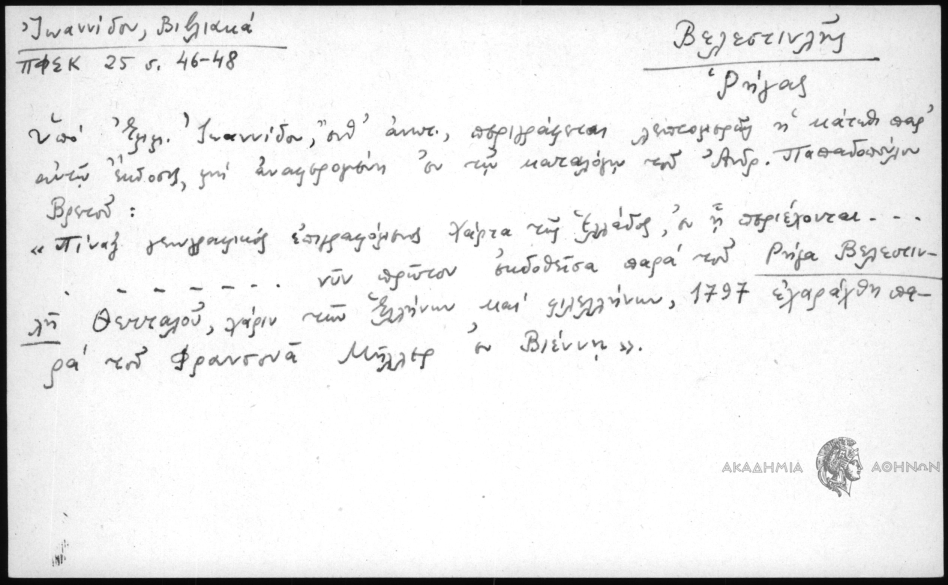 Ἰωαννίδου, Βιβλιακά
ΠΦΣΚ 25 σ. 46-48
Βελεστινλῆς
Ῥήγας
Ὑπό Ἐμμ. Ἰωαννίδου, ἔνθ' ἀνωτ., περιγράφεται λεπτομερῶς ἡ κάτωθι παρ'
αὐτῷ ἔκδοσις, μή ἀναφερομένη ἐν τῷ καταλόγῳ τοῦ Ἀνδρ. Παπαδοπούλου
Βρετοῦ :
« Πίναξ γεωγραφικός ἐπιγραφόμενος Χάρτα τῆς Ἑλλάδος, ἐν ᾗ περιέχονται - - -
. - - - - - - . νῦν πρῶτον ἐκδοθεῖσα παρά τοῦ Ρήγα Βελεστιν-
λῆ Θετταλοῦ, χάριν τῶν Ἑλλήνων καί φιλελλήνων, 1797 ἐχαράχθη πα-
ρά τοῦ Φρανσουᾶ Μήλλερ ἐν Βιέννῃ ».
ΑΚΑΔΗΜΙΑ ΑΘΗΝΩΝ